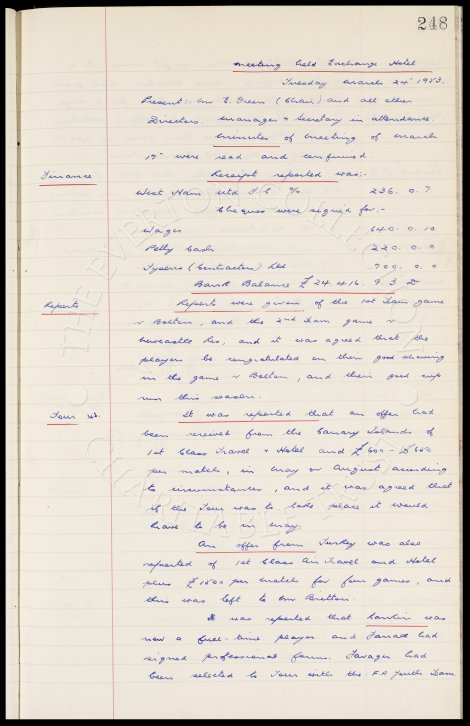 248
Meeting held Exchange Hotel
Tuesday March 24th 1953.
Present:- Mr E. Green (Chair) and all other
Directors. Manager & Secretary in attendance.
Minutes of meeting of March
17th were read and confirmed.
Finance
Receipt reported was:-
West Ham Utd F C %
236. 0. 7
Cheques were signed for:-
Wages
640. 0. 10
Petty Cash
220. 0. 0
Tysons (Contractors) Ltd
700. 0. 0
Bank Balance £24.416. 9. 3 Dr
Reports
Reports were given of the 1st Team game
v Bolton, and the 2nd Team game v
Newcastle Res, and it was agreed that the
players be congratulated on their good showing
in the game v Bolton, and their good cup
run this season.
Tour
It was reported that an offer had
been received from the Canary Islands of
1st Class Travel & Hotel and £600 - £650
per match, in May or August according
to circumstances, and it was agreed that
if the Tour was to take place it would
have to be in May.
An offer from Turkey was also
reported of 1st Class Air Travel and Hotel
plus £1500 per match for four games, and
this was left to Mr Britton.
It was reported that Rankin was
now a full-time player and Farrall had
signed professional forms. Tavager had
been selected to Tour with the F.A Youth Team.
THE EVERTON COLLECTION
CHARITABLE TRUST